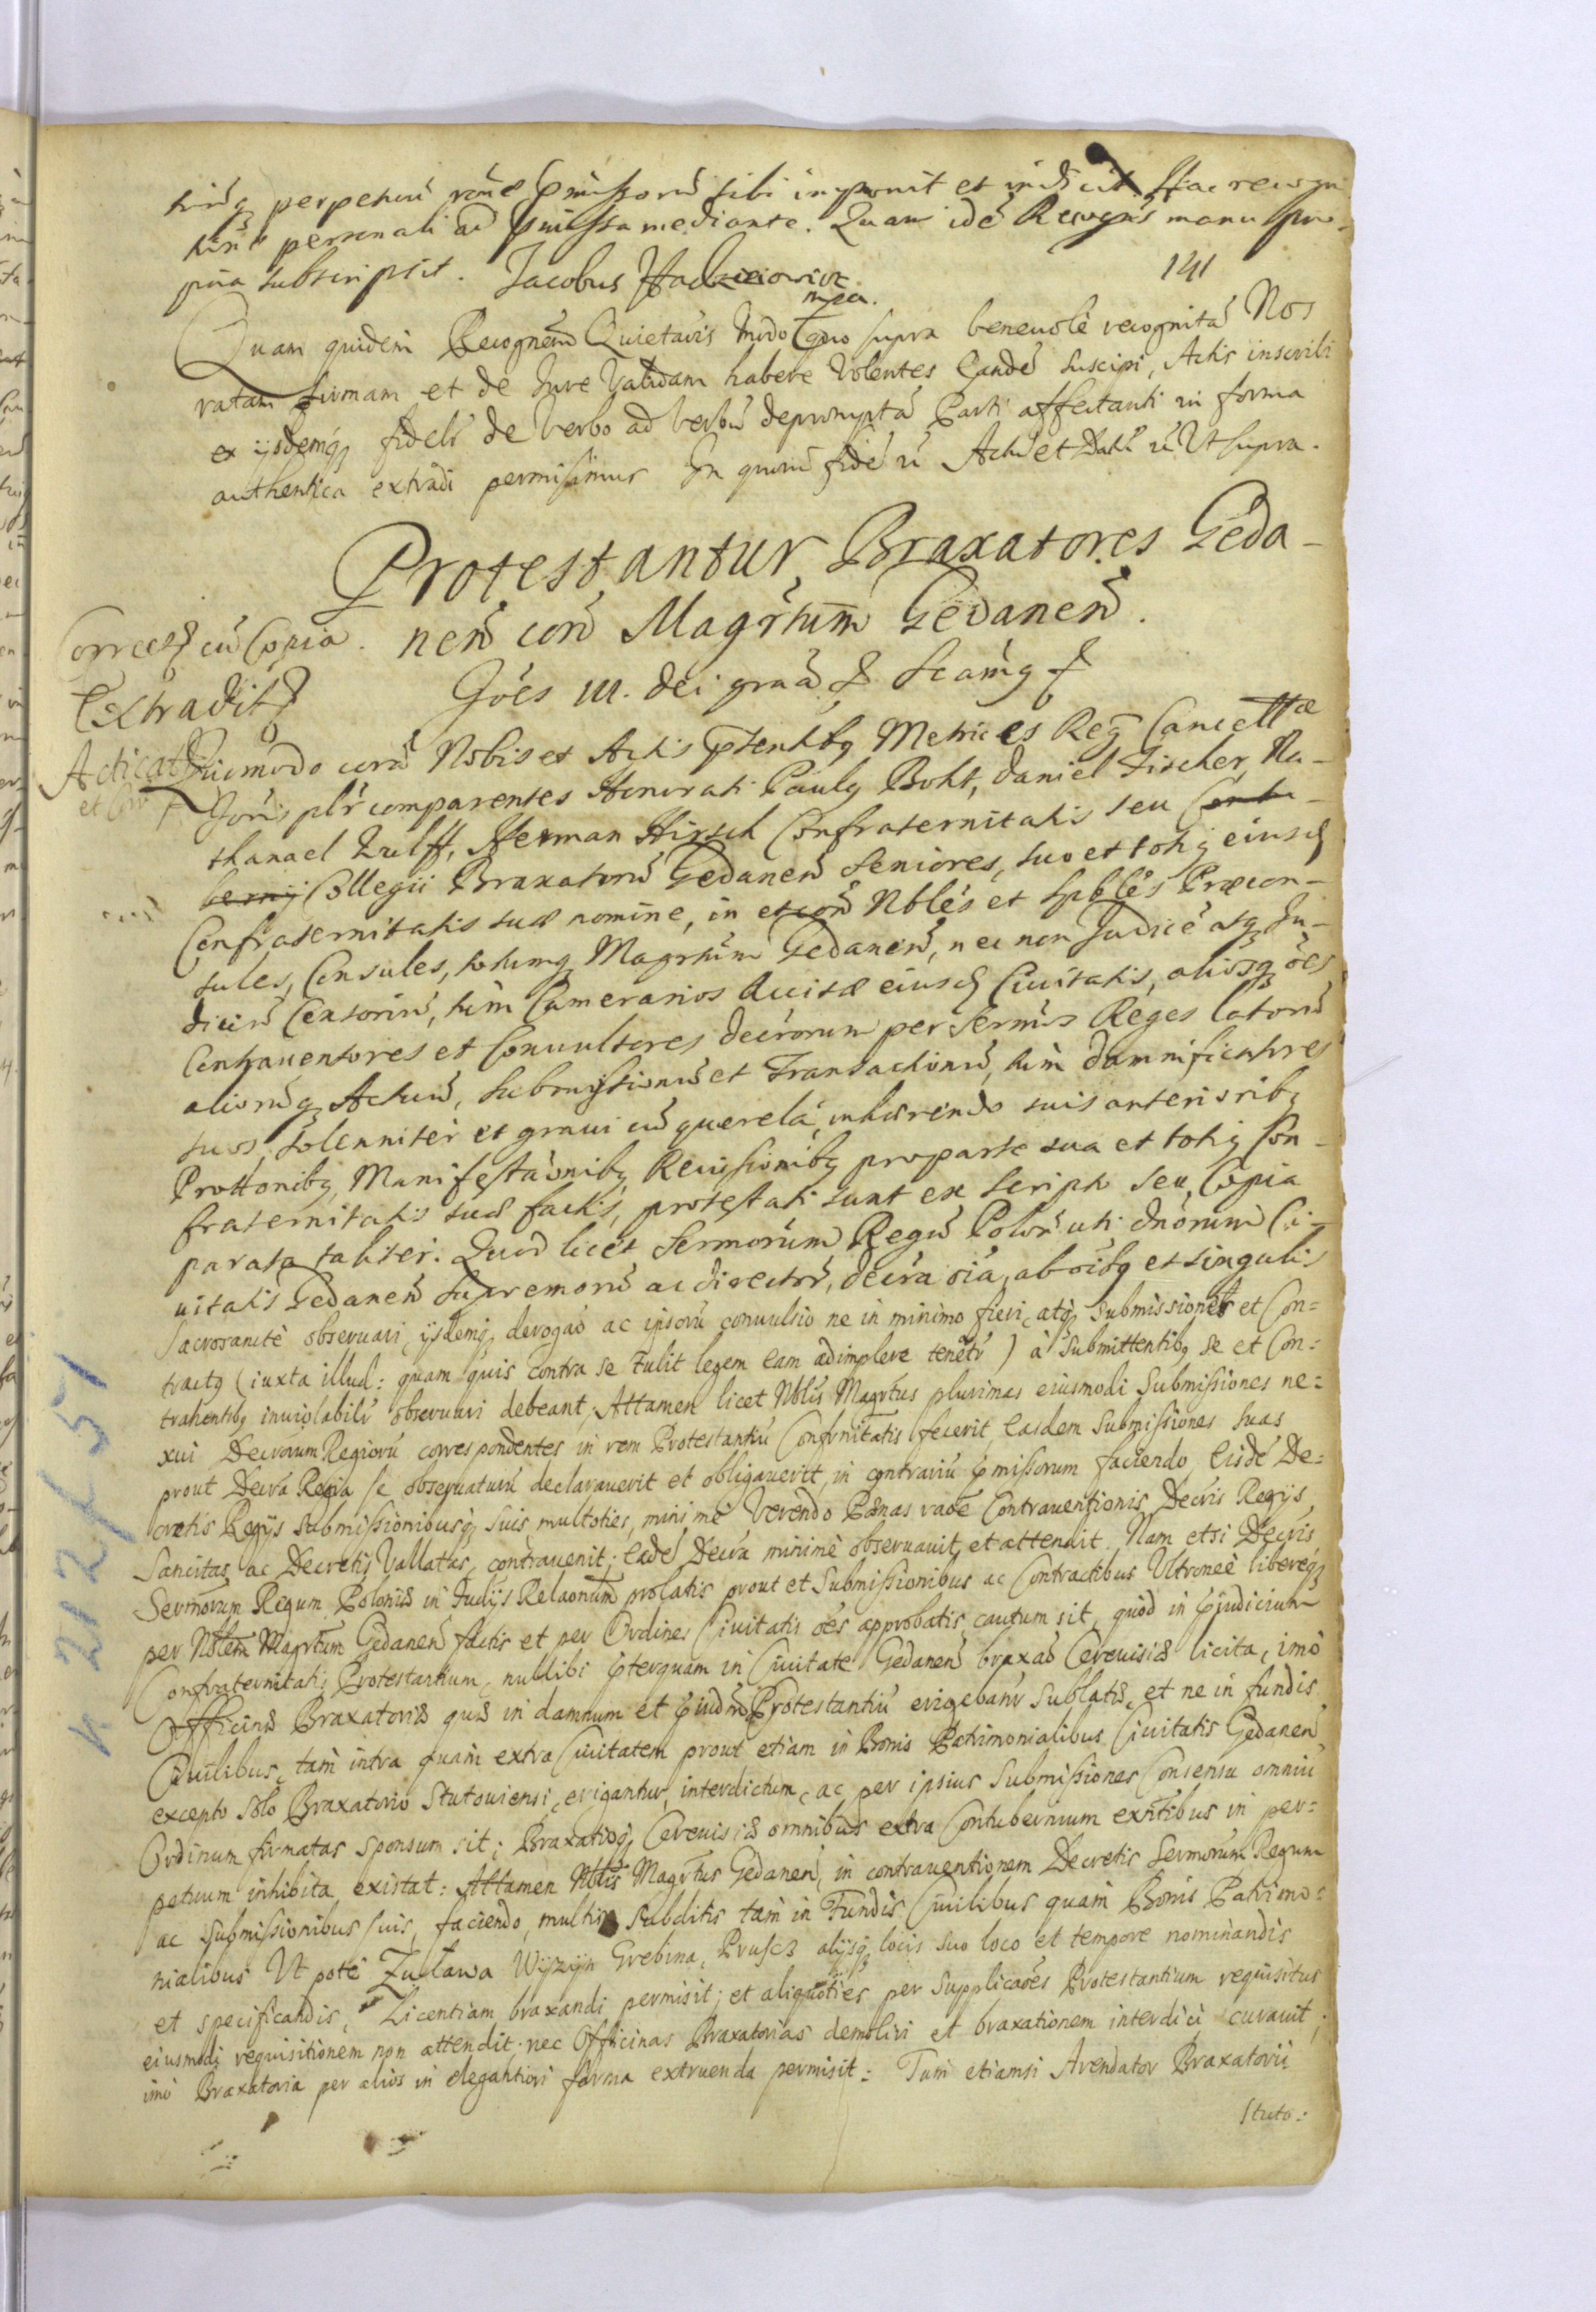 perpetuū sibi imponit et indicit Hac recogn
personali ad præmissa mediante. Quam idē Recogn̄s manu pro-
pria subscripsit. Jacobus
mpa.
141
Quam quidem Recognem̄ Quietaōis modo quo supra beneuolè recognitā Nos
ratam firmam et de Jure Validam habere Volentes Eandē suscipi, Actis inscribi
ex ijsdemq̨ fidelr̄ de Verbo ad verbū depromptā Parti affectanti in forma
authentica extradi permisimus In quorū fidē Actū et Datū Ut supra.
Protestantur Braxatores Geda-
nen̄ con̄ Magr̄tum̄ Gedanen̄.
Correct cū Copia.
Extradit
Joēs III. Dei grā̄ &
Acticat
Quomodo corā Nobis et Actis p̄ntibq̨ Metrices Reg̃ Cancellæ
Joris plr̄ comparentes Honorati Paulq̨ Boht, Daniel Fischer, Na-
thanael Zulff, Herman Hirsch Confraternitatis seu Contu-
bernij Collegii Braxatorū Gedanen̄ Seniores, suo et totiq̨ eiusd̨
Confraternitatis suæ nomine, in et con̄ Nblēs et Spblēs Præcon-
sules, Consules, totumq̨ Magr̄tum̄ Gedanen̄, nec non Judicē atq̨ Ju-
diciū Censorū, tum Camerarios Ciuitatis, aliosq̨ oēs
Contrauentores et Conuultores decr̄orum per Serm̄os Reges latorū
aliorūq̨ Actuū, Submissionū et Transactionū, tum damnificatores
suos, solenniter et graui cū querela, inhærendo suis anterioribq̨
Prot̄tonibq̨ Manifesta͠onibq̨ Recissionibq̨ pro parte sua et totiq̨ Con-
fraternitatis suæ factis, protestati sunt ex scripto seu Copia
parata taliter. Quod licet Serm̄orum Regū Polon̄ uti dn̄orum Ci-
uitatis Gedanen̄ Supremorū ac directorū, decr̄a oīa, ab oībq̨ et singulis
Sacrosanctè obseruari, ijsdemq̨ derogāo ac ipsorū conuulsio ne in minimo fieri, atq̨ Submissiones et Con=
tractq̨ (iuxta illud: quam quis contra se tulit legem eam adimplere tenetr̄) à Submittentibq̨ se et Con=
trahentibq̨ inuiolabilr̄ obseruari debeant, Attamen licet Nblis Magrtus plurimas eiusmodi Submissiones ne=
xui Decr̄orum Regiorū correspondentes in rem Protestantiū Confrnitatis fecerit, Easdem Submissiones suas
prout Decr̄a Regia se obseruaturū declarauerit et obligauerit, in contrariū p̄missorum faciendo, Eisdē De=
cretis Regijs Submissionibusq̨ suis multoties, minimè Verendo Pœnas rāoe Contrauentionis Decr̄is Regijs
Sancitas, ac Decretis Vallatas, contrauenit; Eadē Decr̄a minimè obseruauit, et attendit. Nam etsi Decr̄is
Serm̄orum Regum Poloniæ in Judijs Relaonum̄ prolatis prout et Submissionibus ac Contractibus Ultroneè libereq̨
per Nblem̄ Magrtum Gedanen̄ factis et per Ordines Ciuitatis oēs approbatis cautum sit, quod in p̄iudicium
Confraternitatis Protestantium, nullibi p̄terquam in Ciuitate Gedanen̄ braxāo Cereuisiæ licita, imò
Officinæ Braxatoriæ quæ in damnum et Protestantiū erigebanr̄ sublatæ, et ne in fundis
Ciuilibus, tam intra quam extra Ciuitatem prout etiam in Bonis Patrimonialibus Ciuitatis Gedanen̄,
excepto solo Braxatorio Stutouiensi, erigantur, interdictum, ac per ipsius Submissiones Consensu omniū
Ordinum firmatas sponsum sit; Braxatioq̨ Cereuisiæ omnibus extra Contubernium exn̄tibus in per=
petuum inhibita existat: Attamen Nblis Magrtus Gedanen̄, in contrauentionem Decretis Serm̄orum Regum
ac Submissionibus suis, faciendo, multis Subditis tam in Fundis Ciuilibus quam Bonis Patrimo=
nialibus Ut potè Zuława Wyżyn Grebina, Prusce alijsq̨ locis suo loco et tempore nominandis
et specificandis, Licentiam braxandi permisit; et aliquoties per Supplicaōes Protestantium requisitus
eiusmodi requisitionem non attendit nec Officinas Braxatorias demoliri et braxationem interdici curauit,
imò Braxatoria per alios in elegantiori forma extruenda permisit: Tum etiamsi Arendator Braxatorii
Stuto: